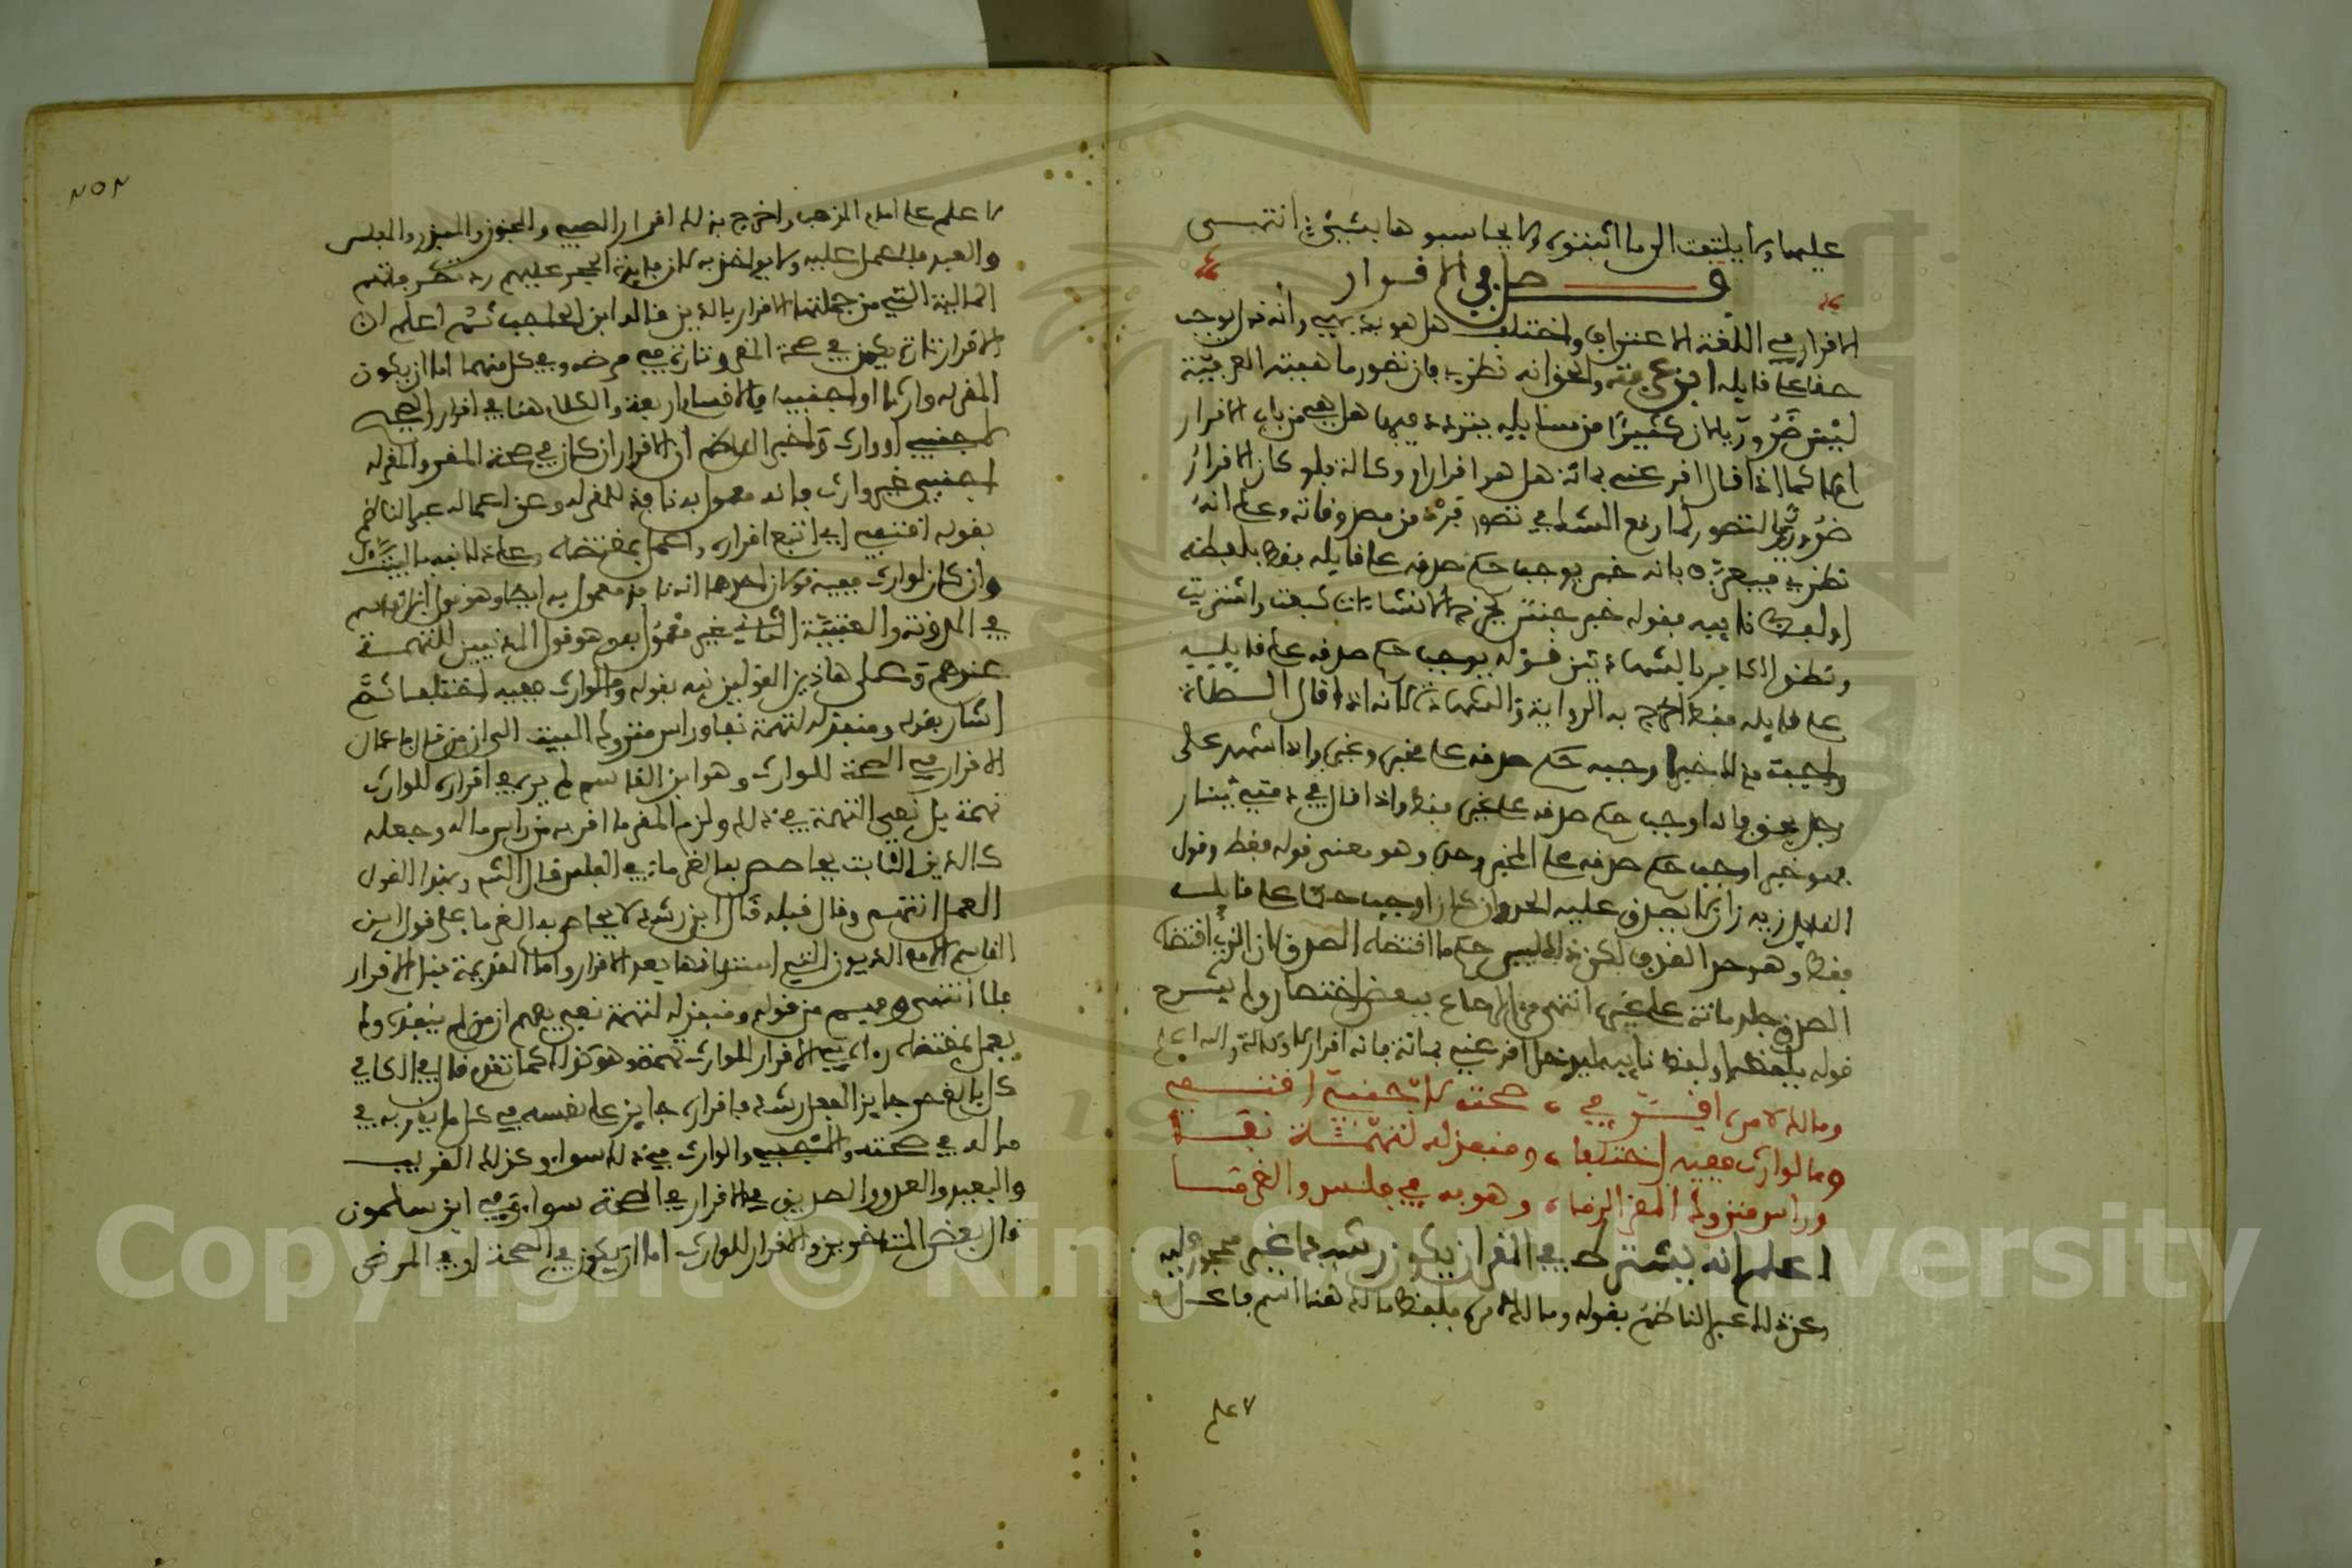 عليها ولا يلتفت الى ما اثبتوه ولا يحاسبوها بشيء انتهى
فصل في الاقرار
الاقرار في اللغة الاعتراف واختلف هل هو بديهي وأنه
حقا على قايله ابن عرفة والحق انه نظري لان تصور ماهيته العرفية
ليس ضروريا لان كثيرا من مسايله يتردد فيها هل هي من باب الاقرار
ام لا كما اذا قال اقر عني بمائة هل هو اقرار او وكالة فلو كان الاقرار
ضروري التصور لما وقع الشك في تصور فرد من مصدوقاته وعلى انه
نظري فيعرف بانه خبر يوجب حكم صدقه على قايله فقط بلفظه
او لفظ نايبه فقوله خبر جنس يخرج الانشاءات كبعت واشتريت
ونطق الكافر بالشهادتين قوله يوجب حكم صدقه على قايله
على قايله فقط اخرج به الرواية والشهادة لانه اذا قال الصلاة
واجبة فذلك خبر اوجب حكم صدقه على مخبره وغيره واذا شهد على
رجل بحق فانه اوجب حكم صدقه على غيره فقط واذا قال في ذمتي دينار
فهو خبر اوجب حكم صدقه على المخبر وحده وهو معنى قوله فقط وقول
القايل زيد زان لا يصدق عليه الحد وان كان اوجب حكما على قايله
فقط وهو حد القذف لكن ذلك ليس حكم ما اقتضاه الصدق لان الذي اقتضاه
الصدق جلد مائة على غيره انتهى من الرصاع ببعض اختصار ولم يشرح
قوله بلفظه او لفظ نايبه ليدخل اقر عني بمائة فانه اقرار لا وكالة والله اعلم
ومالك لامره اقر في صحته لاجنبي اقتفي
وما لوارث ففيه اختلفا ومنفذ له لتهمة نفى
وراس متروك المقر الزما وهو به في فلس والغرما
اعلم انه يشترط في المقر ان يكون رشيدا غير محجور عليه
وعن ذلك عبر الناظم بقوله ومالك لامره فلفظ مالك هنا اسم فاعل
لا علم
٢٥٢
لا علم على امام المذهب واخرج بذلك اقرار الصبي والمجنون والمبذر والمفلس
والعبد فلا يعمل عليه ولا يواخذ به لان فايدة الحجر عليهم رد تصرفاتهم
المالية التي من جملتها الاقرار بالدين قاله ابن الحاجب ثم اعلم ان
الاقرار تارة يكون في صحة المقر وتارة في مرضه وفي كل منهما اما ان يكون
المقر له وارثا او اجنبيا فالاقسام اربعة والكلام هنا في اقرار الصحيح
لاجنبي او وارث واخبر الناظم ان الاقرار ان كان في صحة المقر والمقر له
اجنبي غير وارث فانه معمول به نافذ للمقر له وعن اعماله عبر الناظم
بقوله اقتفي اي اتبع اقراره واعمل بمقتضاه وعلى ذلك نبه بالبيت الاول
وان كان لوارث ففيه قولان احدهما انه نافذ معمول به ايضا وهو قول ابن القاسم
في المدونة والعتبية الثاني غير معمول به وهو قول المدنيين للتهمة
عندهم وعلى هاذين القولين نبه بقوله وما لوارث ففيه اختلفا ثم
اشار بقوله ومنفذ له لتهمة نفى وراس متروك البيت الى ان من قال باعمال
الاقرار في الصحة للوارث وهو ابن القاسم لم ير في اقراره للوارث
تهمة بل نفى التهمة في ذلك والزم المقر ما اقر به من راس ماله وجعله
كالدين الثابت يحاصص به الغرماء في الفلس قال الشم وبهذا القول
العمل انتهى وقال قبله قال ابن رشد لا يحاص به الغرماء على قول ابن
القاسم الا مع الديون التي استدانها بعد الاقرار واما القديمة قبل الاقرار
فلا انتهى وفهم من قوله ومنفذ له لتهمة نفى يفهم ان من لم ينفذه ولم
يعمل بمقتضاه راى في الاقرار للوارث تهمة وهو كذلك كما تقدم قال في الكافي
كل بالغ حر جايز الفعل رشيد فاقراره جايز على نفسه في كل ما يقر به في
ماله في صحته والاجنبي والوارث في ذلك سواء وكذلك القريب
والبعيد والعدو والصديق في الاقرار في الصحة سواء وفي ابن سلمون
قال بعض المتاخرين والاقرار للوارث اما ان يكون في الصحة او في المرض
Copyright © King Saud University